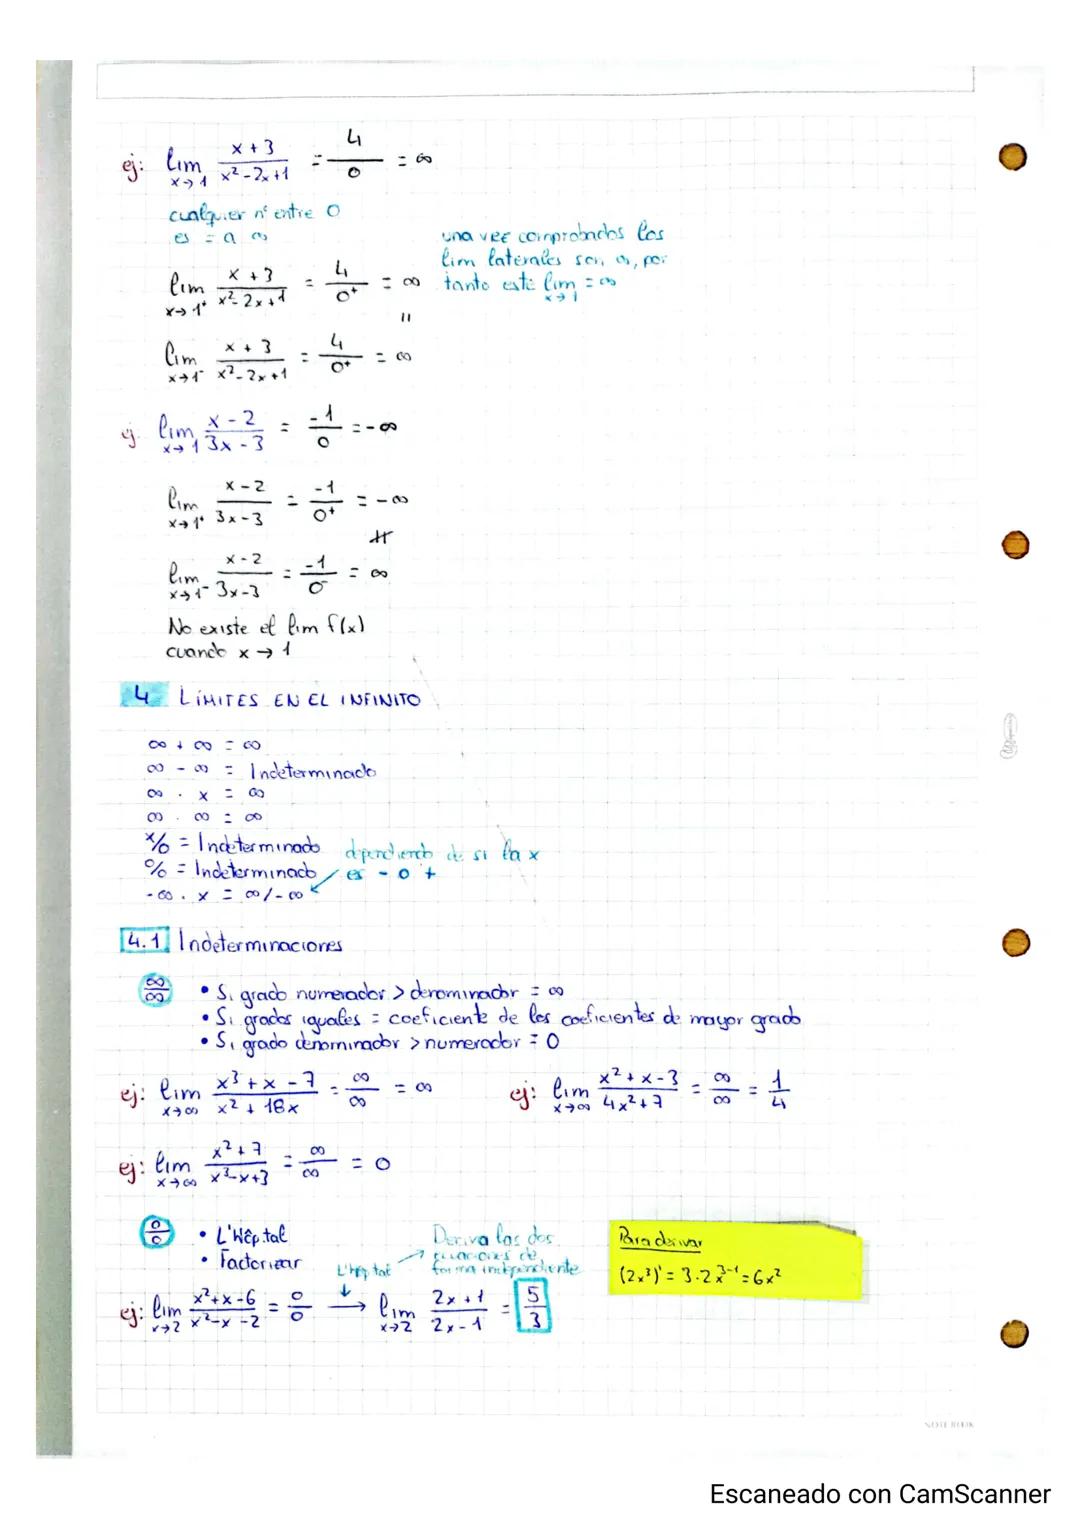 ej: lim x→1 x+3 / x²-2x+1 = 4/0 = ∞
cualquier nº entre 0
es = a ∞
una vez comprobados los
lim laterales son ∞, por
tanto este lim x→1 = ∞
lim x→1⁺ x+3 / x²-2x+1 = 4/0⁺ = ∞
"
lim x→1⁻ x+3 / x²-2x+1 = 4/0⁺ = ∞
ej. lim x→1 x-2 / 3x-3 = -1/0 = -∞
lim x→1⁺ x-2 / 3x-3 = -1/0⁺ = -∞
≠
lim x→1⁻ x-2 / 3x-3 = -1/0⁻ = ∞
No existe el lim f(x)
cuando x → 1
4 LÍMITES EN EL INFINITO
∞ + ∞ = ∞
∞ - ∞ = Indeterminado
∞ · x = ∞
∞ · ∞ = ∞
x/0 = Indeterminado
0/0 = Indeterminado
-∞ · x = ∞/-∞
dependiendo de si la x
es - o +
4.1 Indeterminaciones
∞/∞
• Si grado numerador > denominador = ∞
• Si grados iguales = coeficiente de los coeficientes de mayor grado
• Si grado denominador > numerador = 0
ej: lim x→∞ x³+x-7 / x²+18x = ∞/∞ = ∞
ej: lim x→∞ x²+x-3 / 4x²+7 = ∞/∞ = 1/4
ej: lim x→∞ x²+7 / x³-x+3 = ∞/∞ = 0
0/0
• L'Hêpital
• Factorizar
L'hôpital
Deriva las dos
ecuaciones de
forma independiente
Para derivar
(2x³)' = 3·2x³⁻¹ = 6x²
ej: lim x→2 x²+x-6 / x²-x-2 = 0/0 → lim x→2 2x+1 / 2x-1 = 5/3
NOTE BOOK
Escaneado con CamScanner